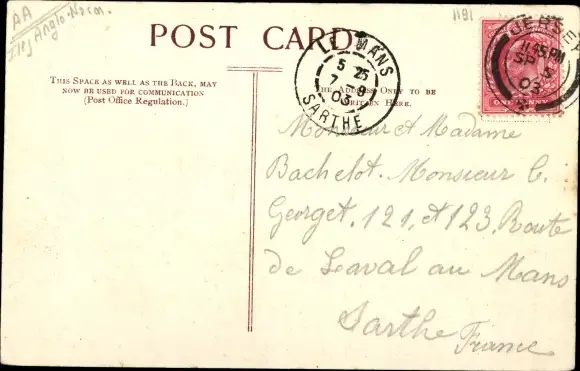 AA
Iles Anglo-Norm.
1191
POST CARD
THIS SPACE AS WELL AS THE BACK, MAY
NOW BE USED FOR COMMUNICATION
(Post Office Regulation.)
THE ADDRESS ONLY TO BE
WRITTEN HERE.
LE MANS
5 25
7 9
03
SARTHE
JERSEY
11.45PM
SP 5
03
ONE PENNY
Monsieur et Madame
Bachelot. Monsieur C.
Georget. 121, et 123, Route
de Laval au Mans
Sarthe
France